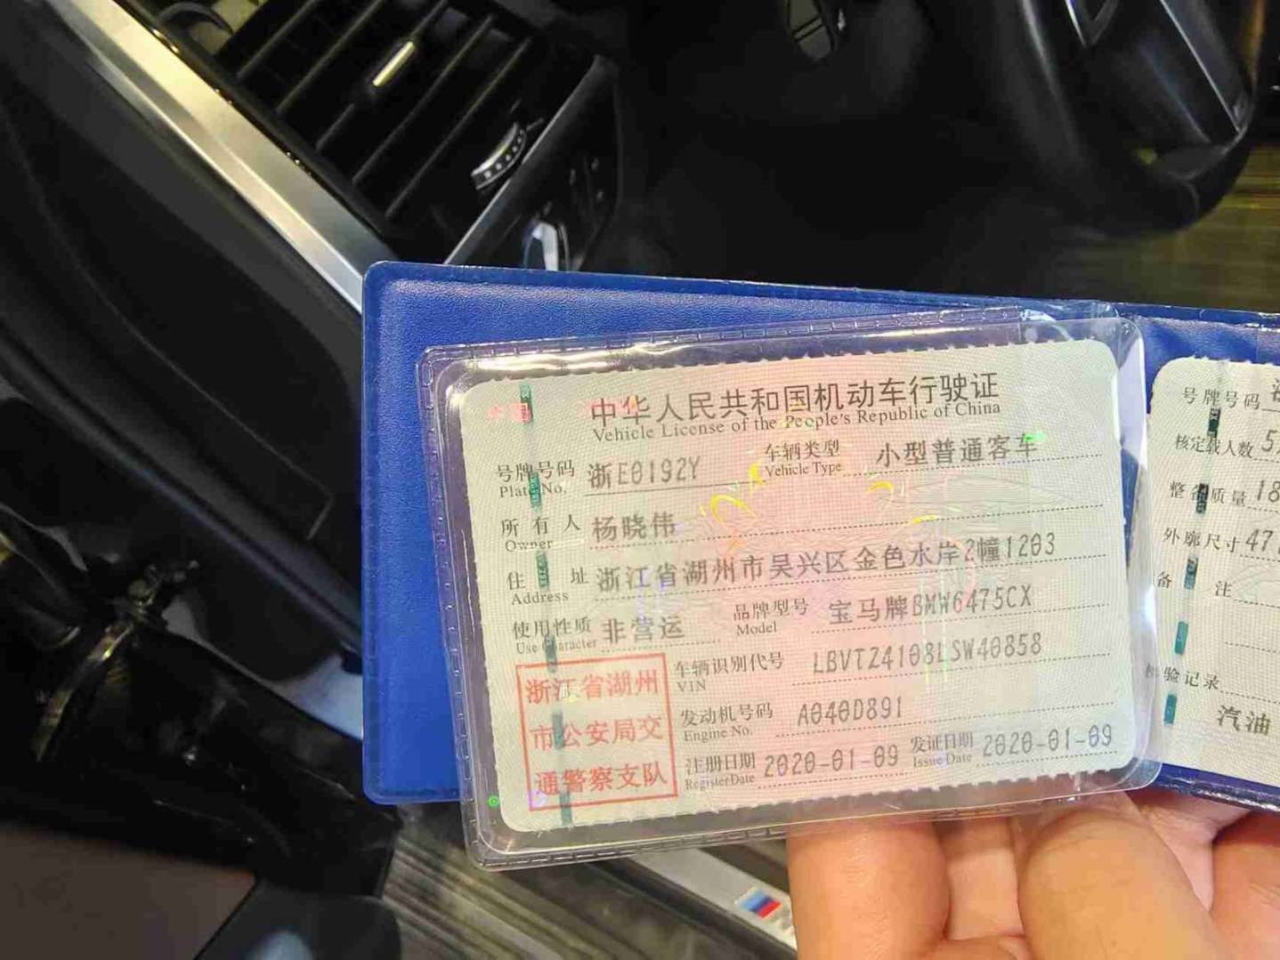 中华人民共和国机动车行驶证
Vehicle License of the People's Republic of China
号牌号码 浙E0192Y 车辆类型 小型普通客车
Plate No. Vehicle Type
所有人 杨晓伟
Owner
住址 浙江省湖州市吴兴区金色水岸2幢1203
Address
使用性质 非营运 品牌型号 宝马牌BMW6475CX
Use Character Model
浙江省湖州
市公安局交
通警察支队
车辆识别代号 LBVTZ4108LSW40858
VIN
发动机号码 A040D891
Engine No.
注册日期 2020-01-09 发证日期 2020-01-09
Register Date Issue Date
号牌号码
核定载人数 5
整备质量 18
外廓尺寸 47
备注
检验记录
汽油